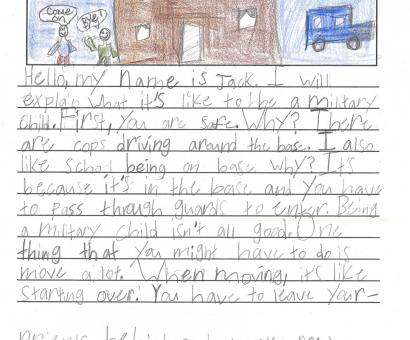 Come on
Bye!
Hello, my name is Jack. I will
explain what it's like to be a military
child. First, you are safe. Why? There
are cops driving around the base. I also
like school being on base why? It's
because it's in the base and you have
to pass through guards to enter. Being
a military child isn't all good. One
thing that you might have to do is
move a lot. When moving, it's like
starting over. You have to leave your-